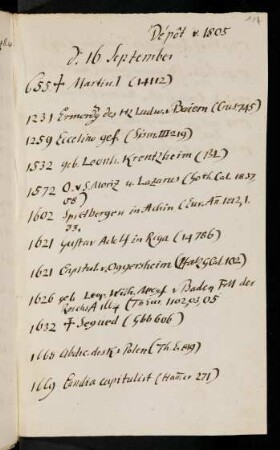 Depôt v. 1805
d. 16 September
655 † Martin I (14112)
1231 Ermordg des Hz Ludw. v. Baiern (Crus 745)
1259 Eccelino gef. (Sism. III 219)
1532 geb. Leonh. Krentzheim (
1572 O. v. S. Moriz u. Lazarus (Goth. Cal. 1837.
58)
1602 Spielbergen in Achin (Eur. An. 1812, 1.
73.
1621 Gustav Adolf in Riga (14786)
1621 Capitul. v. Oggersheim (Pfalz G Cal. 102)
1626 geb. Leop. Wilh. v. Baden Feld der
1632 † Segued (Gbb 606)
1668 Abdic. des K. v Polen (Th. E. 819)
1669 Candia capitulirt (Hamer 271)